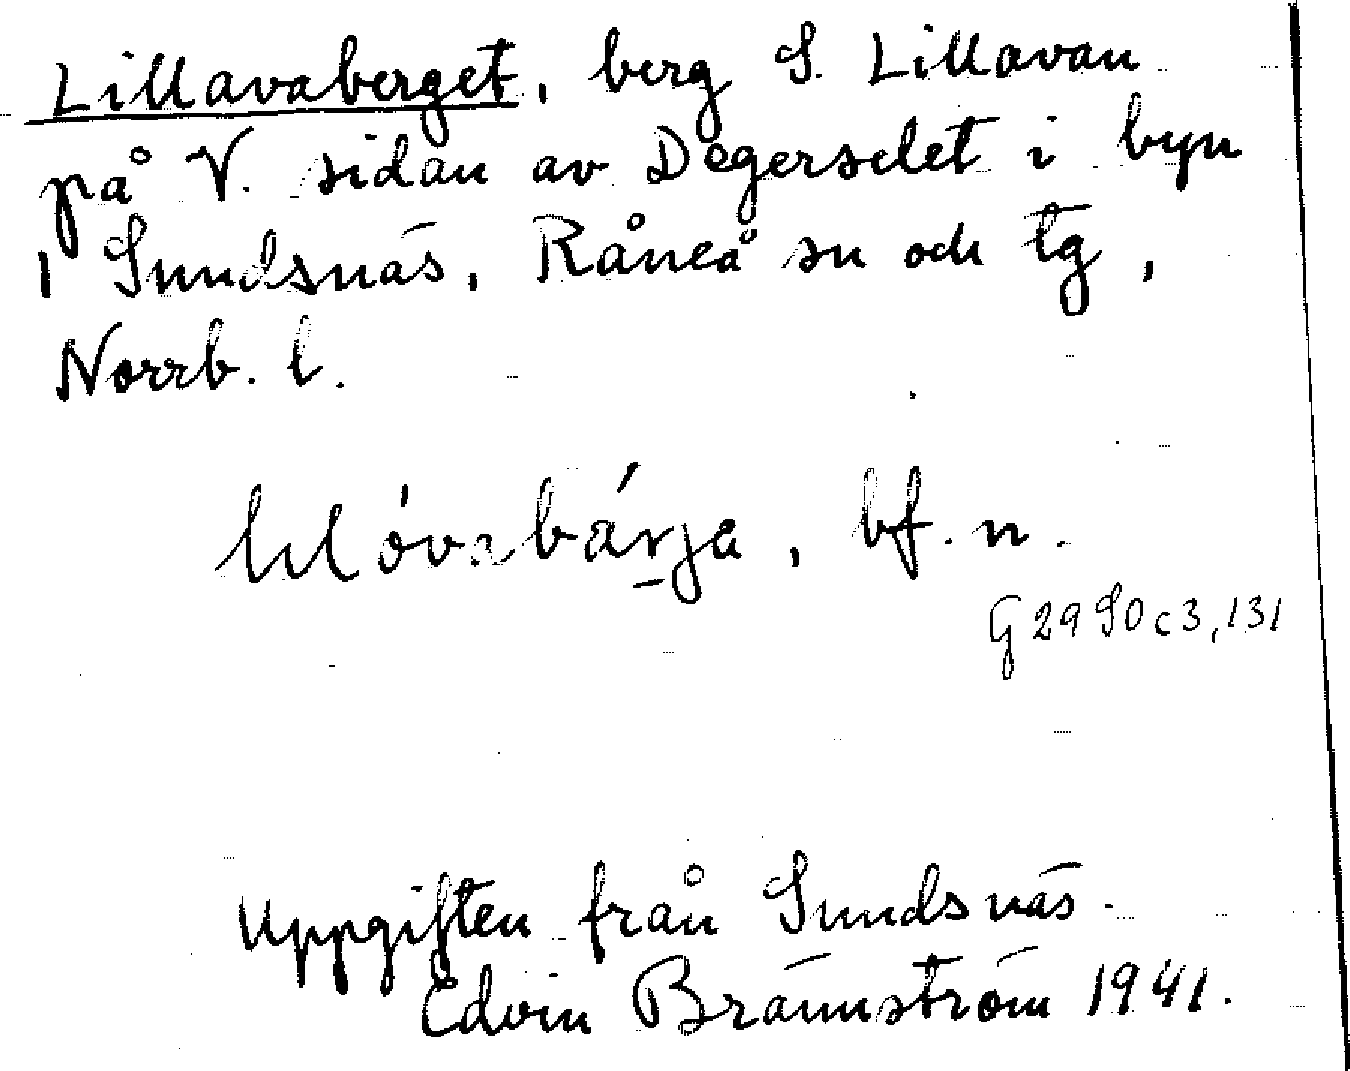 Lillavaberget, berg S. Lillavan
på V. sidan av Degerselet i byn
Sundsnäs, Råneå sn och tg,
Norrb. l.
bf. n.
G 29 SO c 3, 131
Uppgiften från Sundsnäs.
Edvin Brännström 1941.